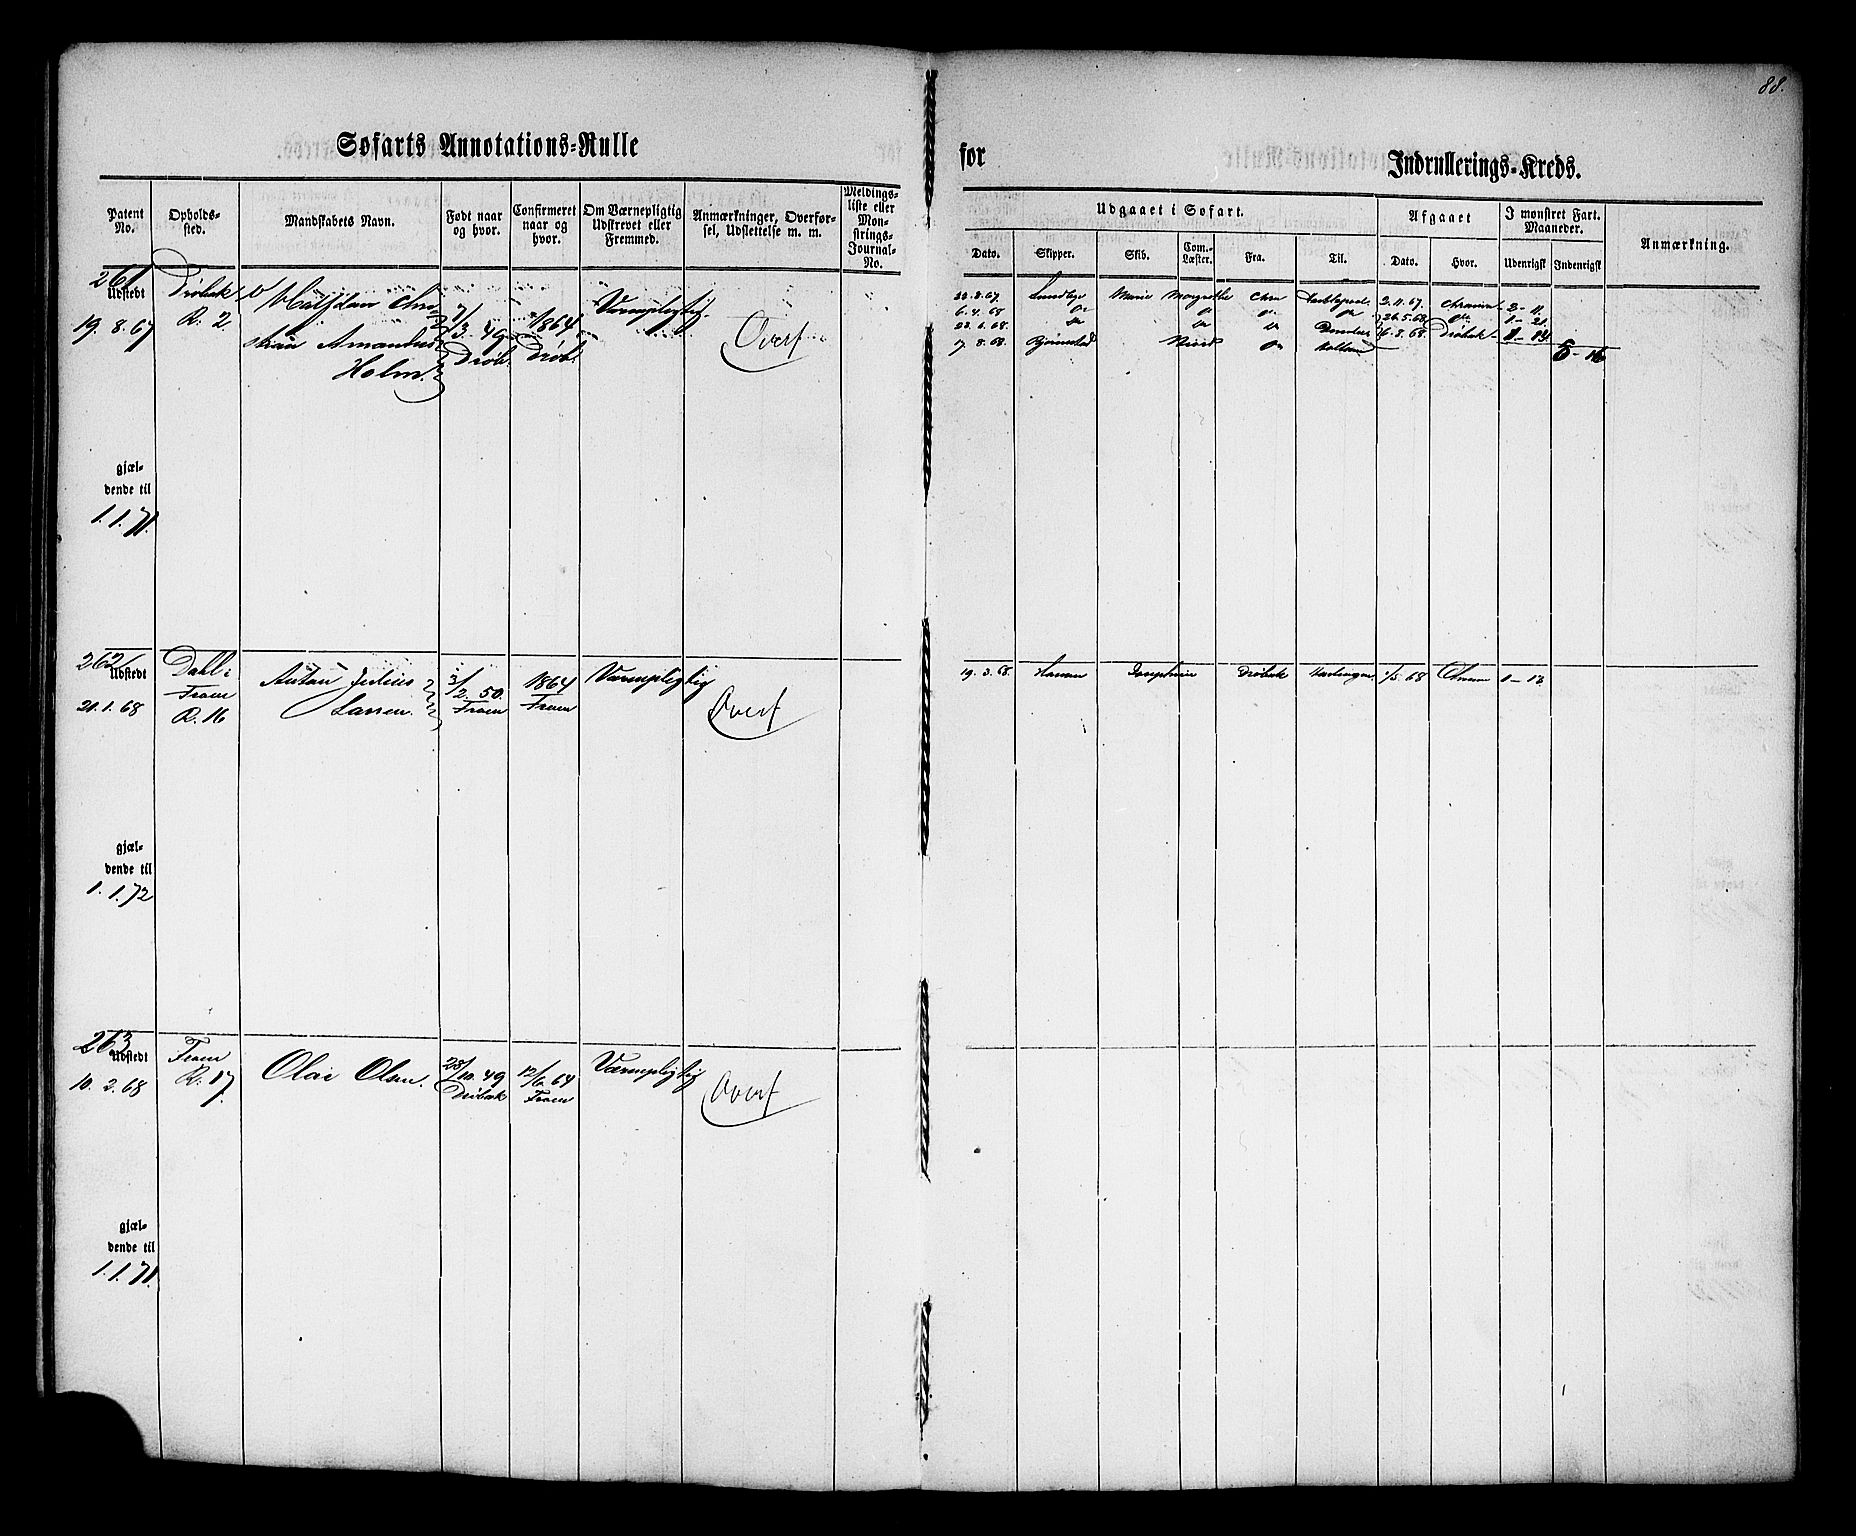 88.
Søfarts Annotations-Rulle
for Indrullerings-Kreds.
Patent No.
Opholds-sted.
Mandskabets Navn.
Født naar og hvor.
Confirmeret naar og hvor.
Om Værnepligtig Udskrevet eller Fremmed.
Anmærkninger, Overfør-sel, Udslettelse m. m.
Meldings-liste eller Mon-strings-Journal-No.
Udgaaet i Søfart.
Afgaaet
I mønstret Fart. Maaneder.
Anmærkning.
Dato. Skipper. Skib. Com.-Læster. Fra. Til. Dato. Hvor. Udenrigsk Indenrigsk
261
Udstedt
19. 8. 67
Drøbak
R. 2
Halfdan Chri
stian Amandus
Holm.
7/3. 49
Drøb.
1864
Drøb.
Værnepligtig
Overf
gjæl-
dende til
1. 1. 71.
22. 8. 67. Marie Margrethe Chra 2. 11. 67. 2 - 11.
6. 4. 68 do do do do 26. 5. 68. do 1 - 21
do do do 6. 8. 68. Drøbak
7. 8. 68. do 8 - 16
262
Udstedt
21. 1. 68
Dahl
Fraen
R. 16
Anton Julius
Larsen.
3/2. 50.
Fraen
1864
Fraen
Værnepligtig
Overf
gjæl-
dende til
1. 1. 72
19. 3. 68. Hansen Josephine Drøbak Harlingen 1/5. 68 1 - 13
263
Udstedt
10. 2. 68
Fraen
R. 17.
Olai Olsen.
28/10. 49
Drøbak
12/6. 64
Fraen
Værnepligtig
Overf
gjæl-
dende til
1. 1. 71.